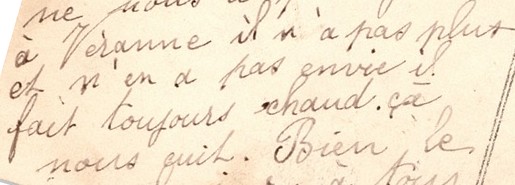 ne nous a
à Véranne il n'a pas plut
et n'en a pas envie il
fait toujours chaud. çā
nous cuit. Bien le
à tous